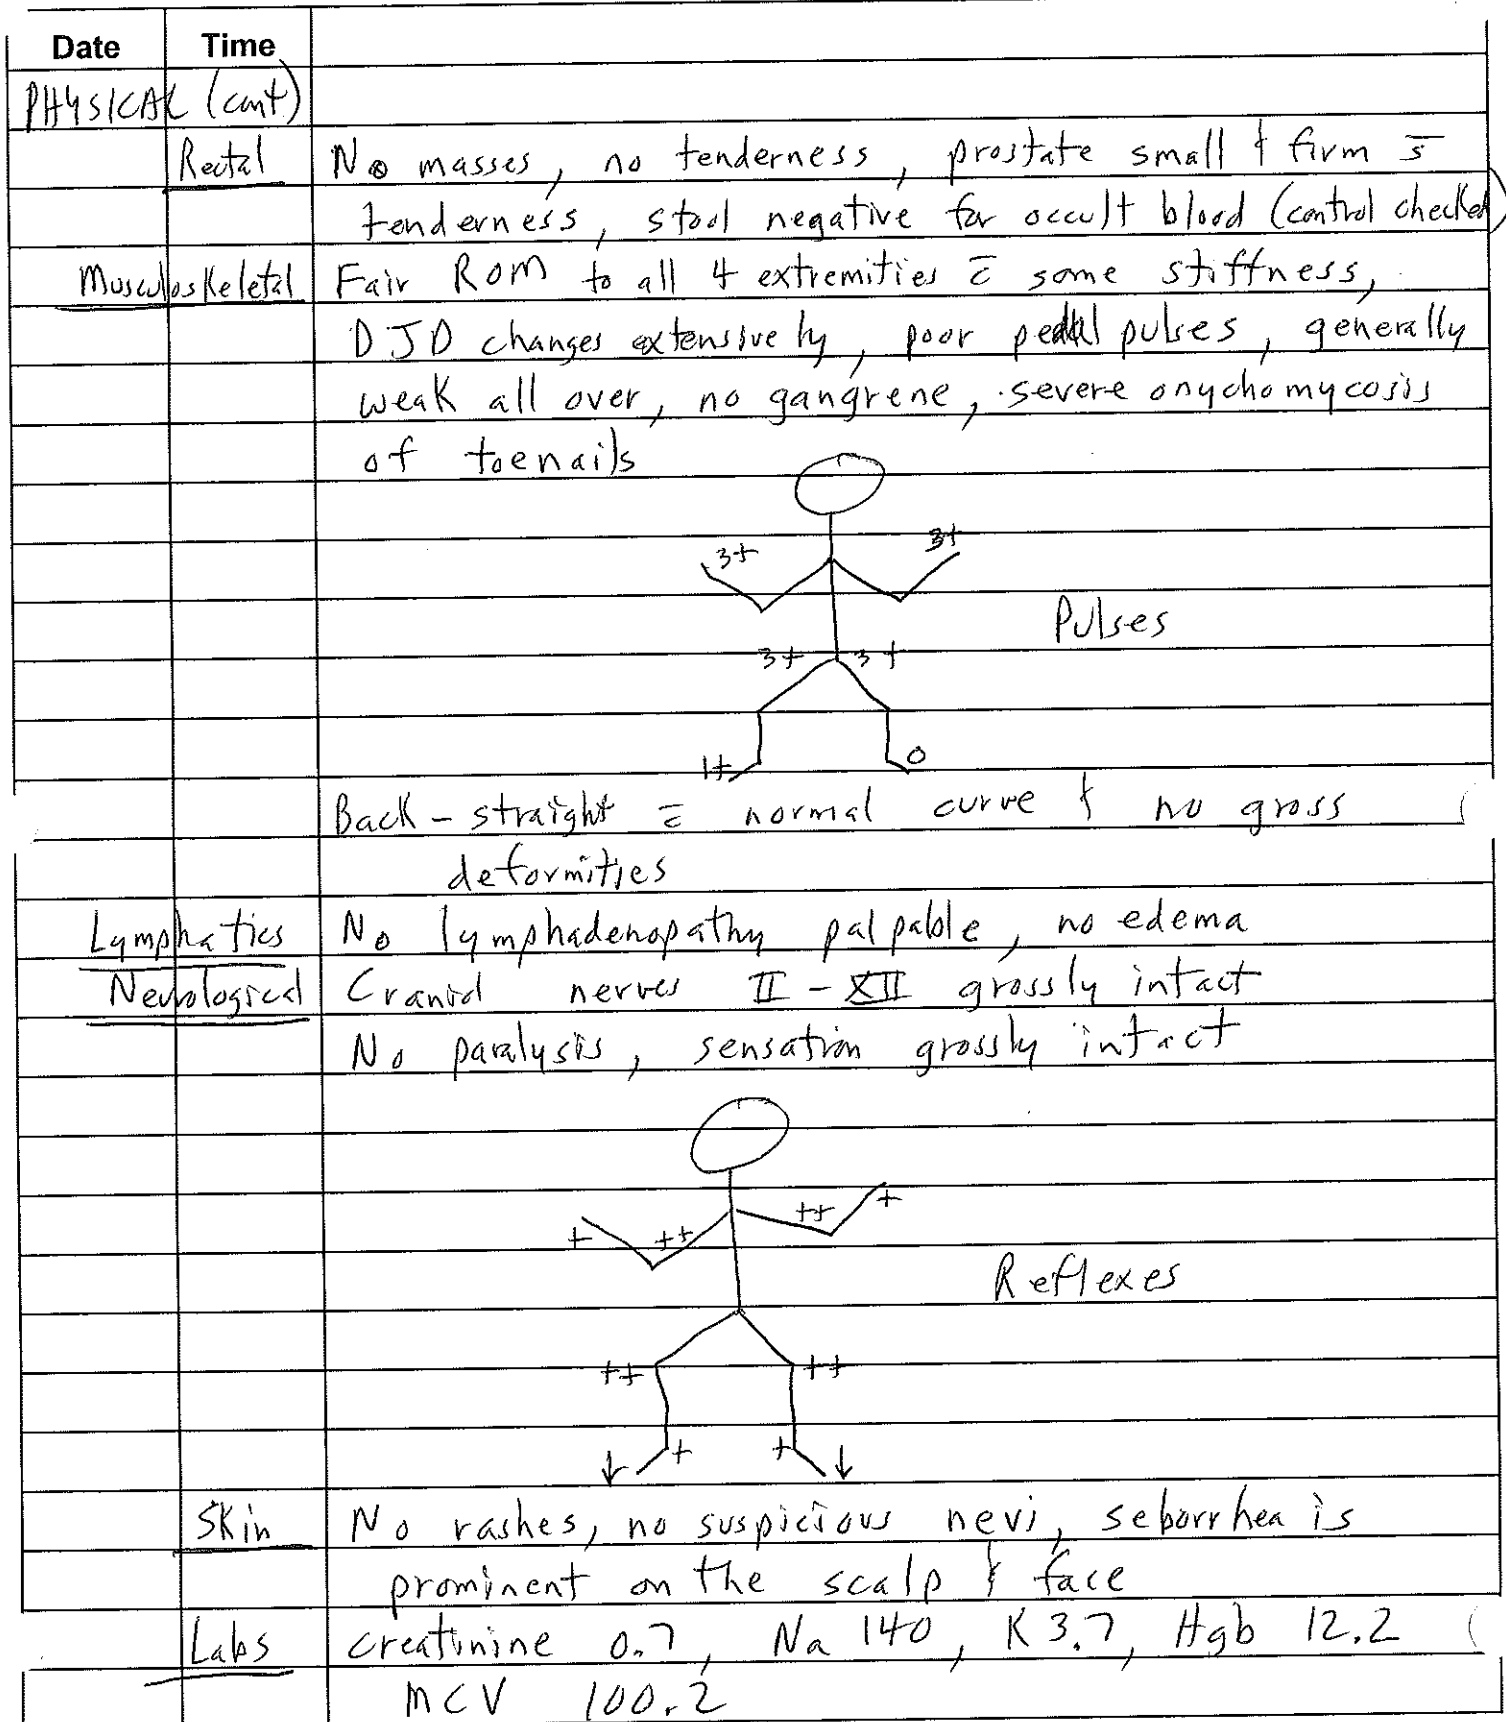 Date Time
PHYSICAL (cont)
Rectal No masses, no tenderness, prostate small & firm s̄
tenderness, stool negative for occult blood (control checked)
Musculoskeletal Fair ROM to all 4 extremities c̄ some stiffness,
DJD changes extensively, poor pedal pulses, generally
weak all over, no gangrene, severe onychomycosis
of toenails
3+ 3+
Pulses
3+ 3+
1+ 0
Back - straight c̄ normal curve & no gross
deformities
Lymphatics No lymphadenopathy palpable, no edema
Neurological Cranial nerves II - XII grossly intact
No paralysis, sensation grossly intact
+ ++ ++ +
Reflexes
++ ++
↓ + + ↓
Skin No rashes, no suspicious nevi, seborrhea is
prominent on the scalp & face
Labs creatinine 0.7, Na 140, K 3.7, Hgb 12.2
MCV 100.2